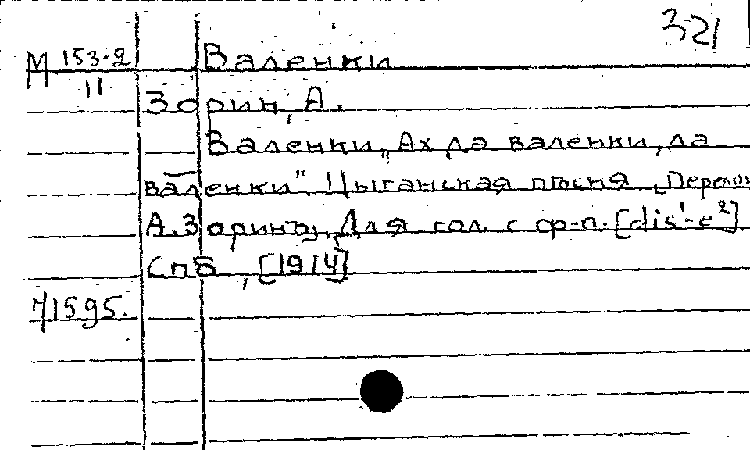 321
М 153-2 Валенки
11
Зорин, А.
Валенки „Ах да валенки, да
валенки". Цыганская пѣсня. Перелож
А. Зорина. Для гол. с ф-п. [dis¹-e²]
Спб., [1914]
71595.